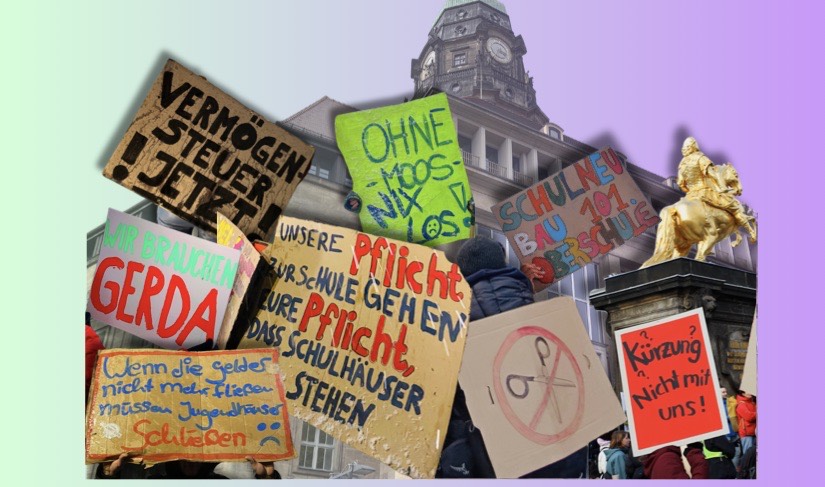 VERMÖGEN-
STEUER
! JETZT!
OHNE
-MOOS-
NIX
LOS!
SCHULNEU
BAU 101
OBERSCHULE
WIR BRAUCHEN
GERDA
UNSERE Pflicht,
ZUR SCHULE GEHEN
EURE Pflicht,
DASS SCHULHÄUSER
STEHEN
Wenn die gelder
nicht mehr fließen
müssen Jugendhäuser
Schließen
Kürzung?
Nicht mit
uns!